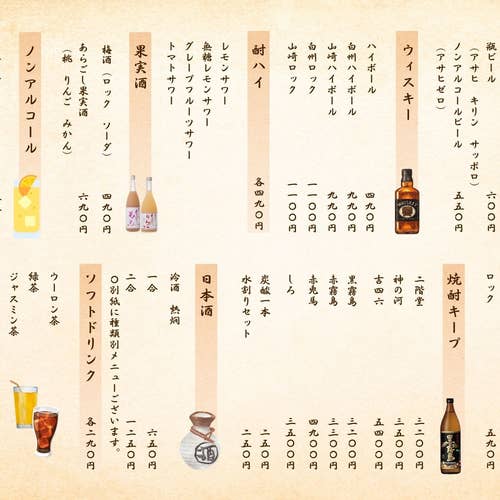 瓶ビール 六〇〇円
(アサヒ キリン サッポロ)
ノンアルコールビール 五五〇円
(アサヒゼロ)
ウィスキー
ハイボール 四九〇円
白州ハイボール 九九〇円
山崎ハイボール 九九〇円
白州ロック 一一〇〇円
山崎ロック 一一〇〇円
酎ハイ 各四九〇円
レモンサワー
無糖レモンサワー
グレープフルーツサワー
トマトサワー
果実酒
梅酒(ロック ソーダ) 四九〇円
あらごし果実酒 六九〇円
(桃 りんご みかん)
ノンアルコール
ロック 五九〇円
焼酎キープ
二階堂 三二〇〇円
神の河 三二〇〇円
吉四六 五四〇〇円
黒霧島 三二〇〇円
赤霧島 三三〇〇円
赤兎馬 四九〇〇円
しろ 三五〇〇円
炭酸一本 二五〇円
水割りセット 二五〇円
日本酒
冷酒 熱燗
一合 六五〇円
二合 一二五〇円
〇別紙に種類別メニューございます。
ソフトドリンク 各二九〇円
ウーロン茶
緑茶
ジャスミン茶